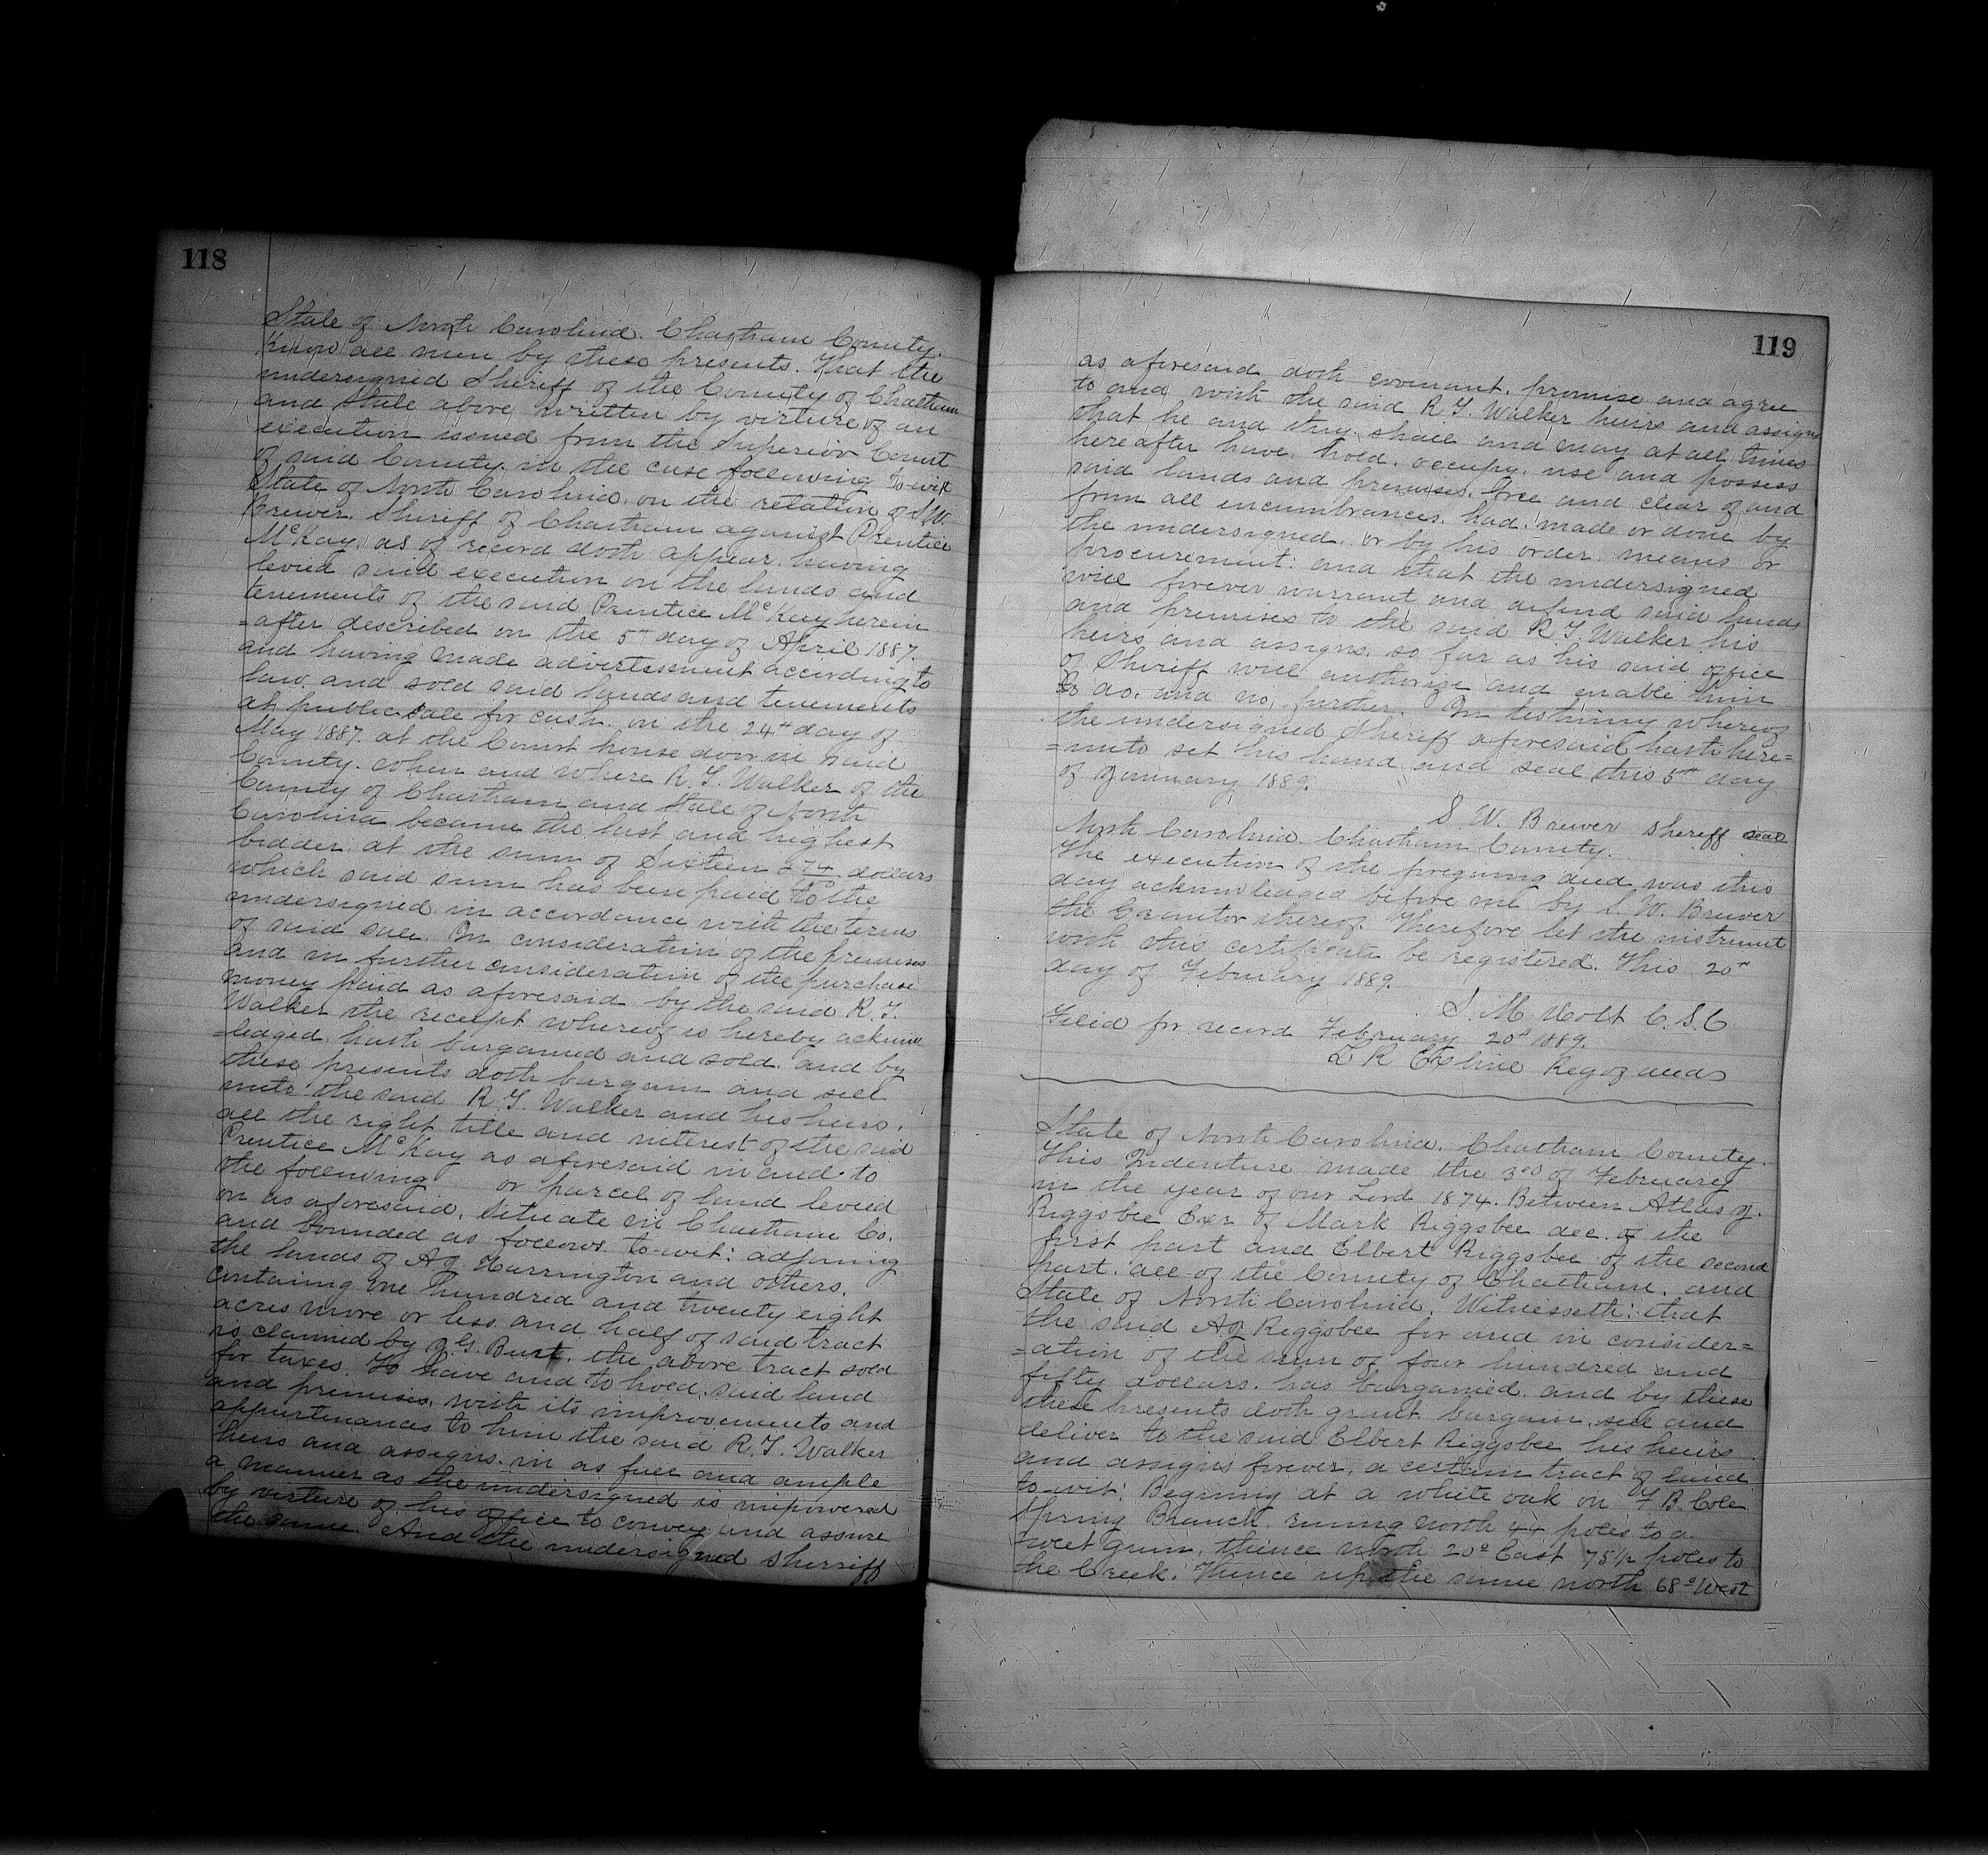 118
State of North Carolina. Chatham County.
Know all men by these presents. That the
undersigned Sheriff of the County of Chatham
and State above written by virture of an
execution issued from the Superior Court
of said County. in the case following to-wit
State of North Carolina. on the relation of S. W.
Brewer. Sheriff of Chatham against Prentice
McKay. as of record doth appear. having
levied said execution on the lands and
tenements of the said Prentice McKay herein
=after described on the 5th day of April 1887.
and having made advertesment according to
law. and sold said lands and tenements
at public sale for cash. on the 24th day of
May 1887. at the Court house door in said
County. when and where R. J. Walker of the
County of Chatham and State of North
Carolina became the last and highest
bidder. at the sum of Sixteen & 74/100 dollars
which said sum has been paid to the
undersigned. in accordance with the terms
of said sale. In consideration of the premises
and in further consideration of the purchase
money paid as aforesaid by the said R. J.
Walker the receipt whereof is hereby acknow
=ledged. hath bargained and sold. and by
these presents doth bargain and sell
unto the said R. J. Walker and his heirs.
all the right title and interest of the said
Prentice McKay as aforesaid in and to
the following or parcel of land levied
on as aforesaid. Situate in Chatham Co.
and bounded as follows. to-wit: adjoining
the lands of A. J. Harrington and others.
Containing one hundred and twenty eight
acres more or less. and half of said tract
is claimed by J. G. Burt. the above tract sold
for taxes. To have and to hold. said land
and premises. with its improvements and
appurtenances to him the said R. J. Walker
heirs and assigns. in as full and ample
a manner as the undersigned is impowered
by virture of his office to convey and assure
the same. And the undersigned Sherriff
119
as aforesaid doth covenant. promise and agree
to and with the said R J. Walker heirs and assigns
that he and they shall and may at all times
hereafter have. hold. occupy. use and possess
said lands and premises. free and clear of and
from all incumbrances. had. made or done by
the undersigned. or by his order. means or
procurement: and that the undersigned
will forever warrant and defend said lands
and premises to the said R J. Walker his
heirs and assigns. so far as his said office
of Sheriff will authorise and enable him
to do. and no further. In testimony whereof
the undersigned Sheriff aforesaid hath here=
=unto set his hand and seal this 5th day
of January 1889.
S. W. Brewer Sheriff seal
North Carolina. Chatham County.
The execution of the foregoing deed was this
day acknowledged before me by S. W. Brewer
the Grantor thereof. Therefore let the instrument
with this certificate be registered. This 20th
day of February 1889.
S. M. Holt C. S. C
Filed for record February 20th 1889.
L R Exline Reg of deeds
State of North Carolina. Chatham County.
This Indenture made the 3rd of February
in the year of our Lord 1874. Between Atlas J.
Riggsbee Exr of Mark Riggsbee dec. of the
first part and Elbert Riggsbee of the second
part. all of the County of Chatham. and
State of North Carolina. Witnesseth: that
the said A J Riggsbee for and in consider=
=ation of the sum of four hundred and
fifty dollars. has bargained. and by these
these presents doth grant. bargain. sell and
deliver to the said Elbert Riggsbee his heirs
and assigns forever. a certain tract of land
to-wit: Begining at a white oak on F. B. Cole
Spring Branch. runing north 44 poles to a
sweet gum. thence north 20° East 75 1/2 poles to
the Creek. Thence up the same north 68° West